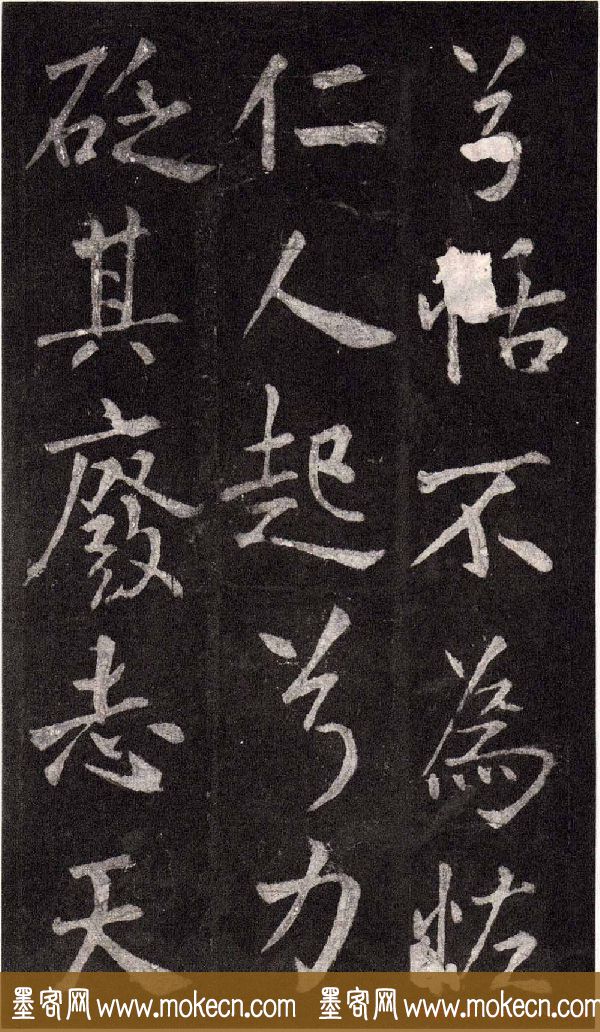 兮恬不為恠
仁人起兮力
砭其廢志天
墨客网 www.mokecn.com 墨客网 www.mokecn.com